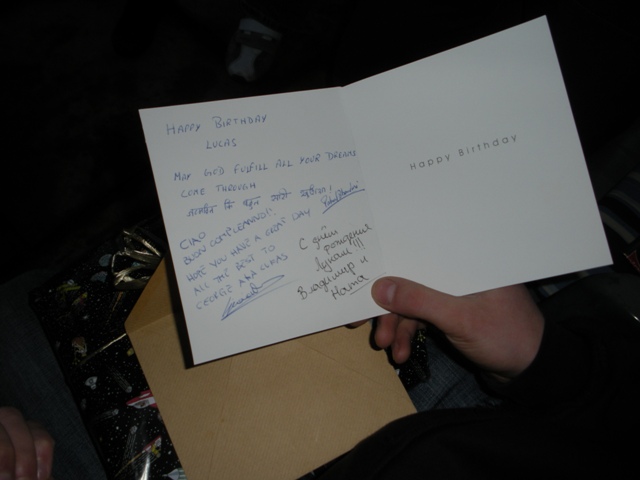 HAPPY BIRTHDAY
LUCAS
MAY GOD FULFILL ALL YOUR DREAMS
COME THROUGH
CIAO
BUON COMPLEANNO!!
HOPE YOU HAVE A GREAT DAY
ALL THE BEST TO
GEORGE AKA LUKAS
С днём
рождения
Лукаш!!!
Владимир и
Настя
Happy Birthday